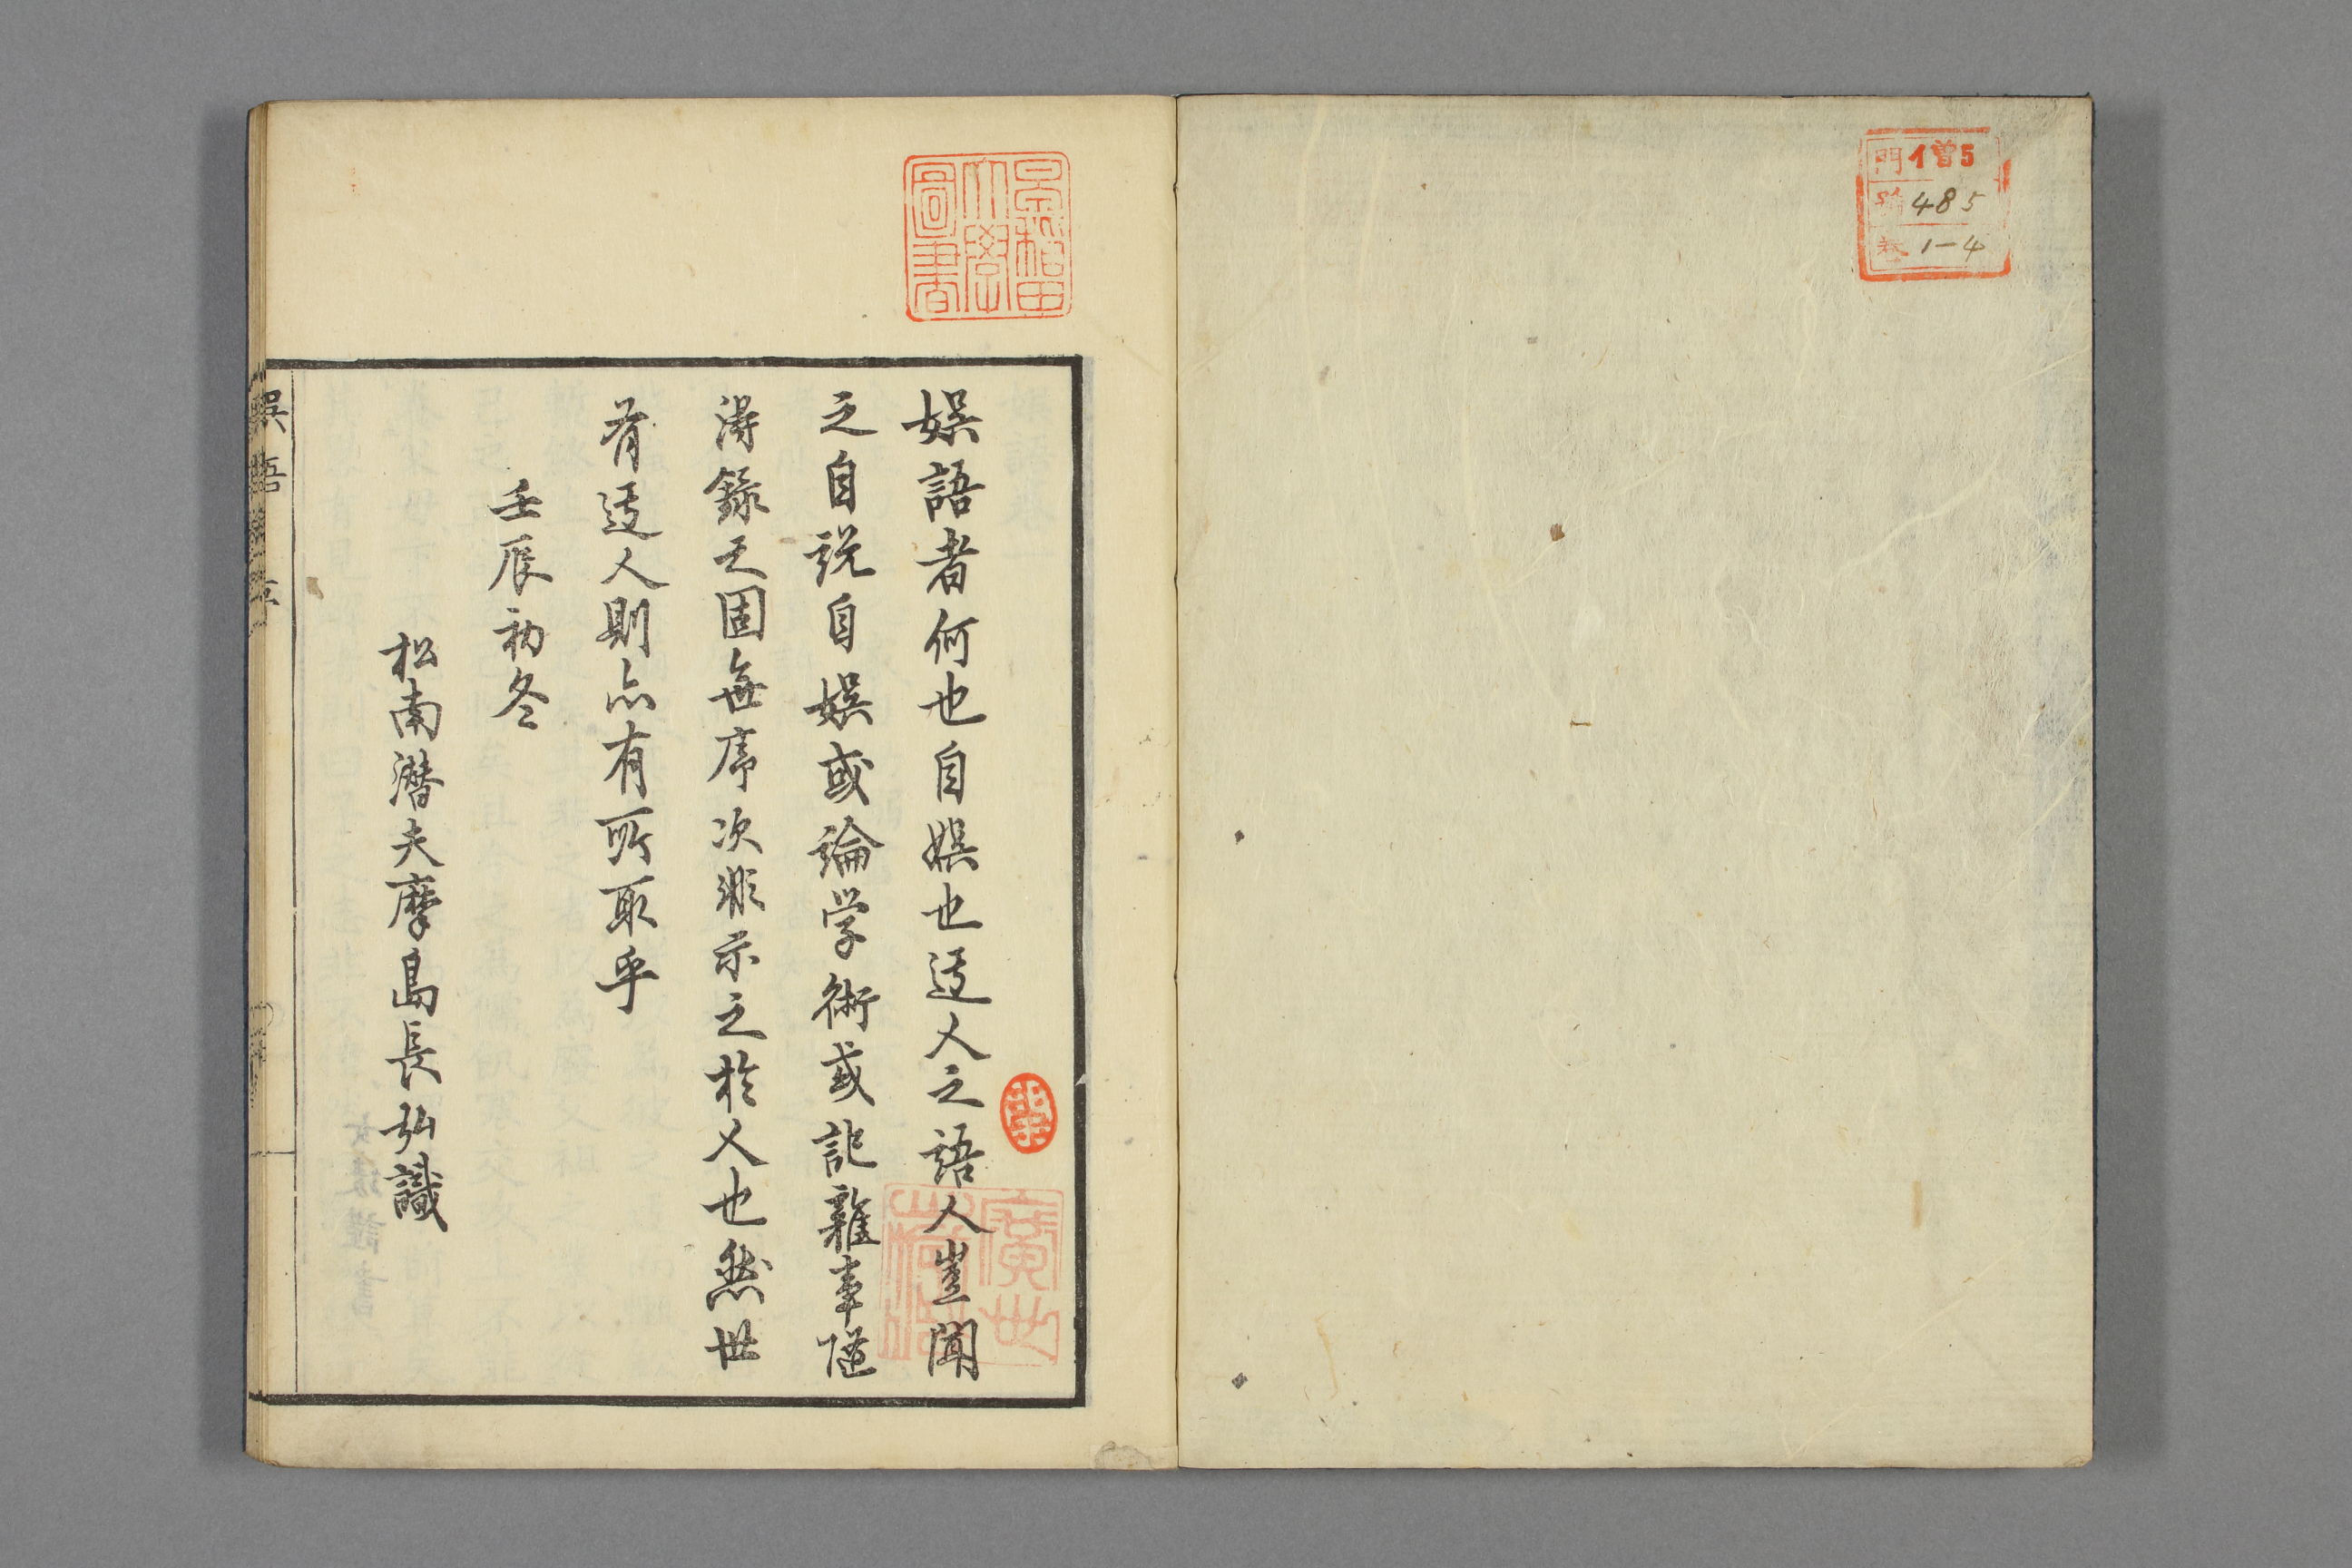 門 イ曽5
號 485
卷 1-4
早稲田大學圖書
娯語者何也自娯也迂人之語人豈聞
之自説自娯或論学術或記雜事随
得録之固無序次非示之於人也然世
有迂人則亦有所取乎
壬辰初冬
松南潜夫摩島長弘識
娯語 序